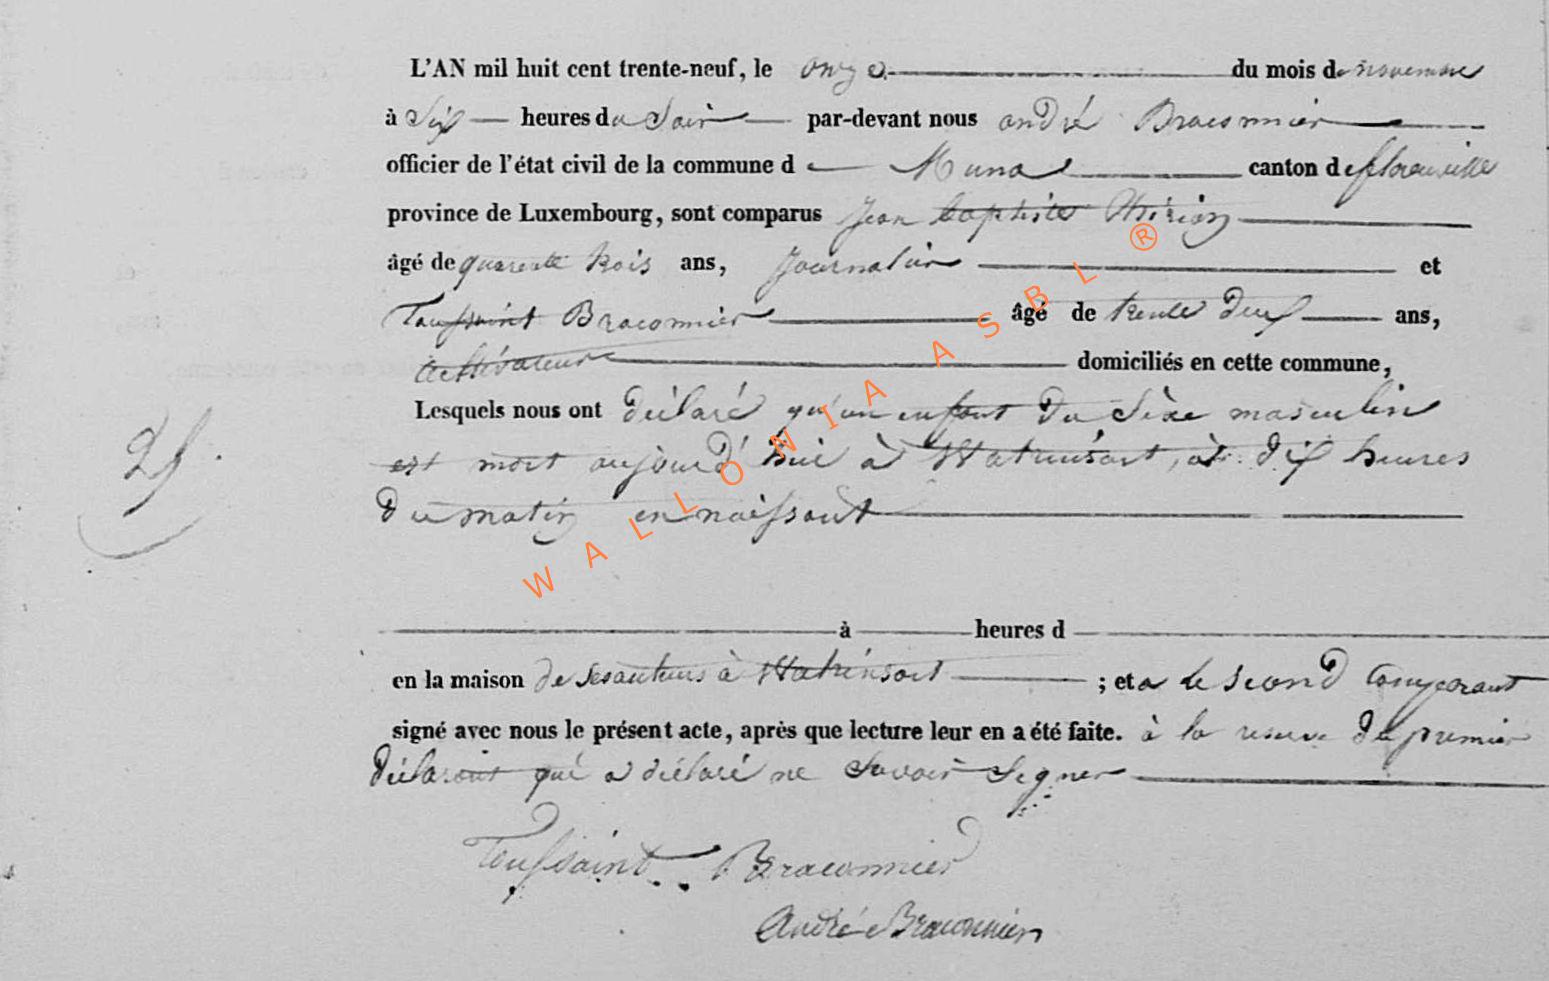 L'AN mil huit cent trente-neuf, le onze du mois de novembre
à Six heures du Soir par-devant nous andré Braconnier
officier de l'état civil de la commune d Muno canton de florenville
province de Luxembourg, sont comparus Jean baptiste Thirion
âgé de quarente trois ans, Journalier et
Toussaint Braconnier âgé de trente deux ans,
Cultivateur domiciliés en cette commune,
Lesquels nous ont déclaré qu'un enfant du Sèxe masculin
est mort aujourd'hui à Watrinsart, à dix heures
du matin en naissant
à heures d
en la maison de ses auteurs à Watrinsart ; et a le second Comparant
signé avec nous le présent acte, après que lecture leur en a été faite. à la reserve du premier
déclarant qui a déclaré ne Savoir Signer
Toussaint Braconnier
André Braconnier
WALLONIA ASBL ®